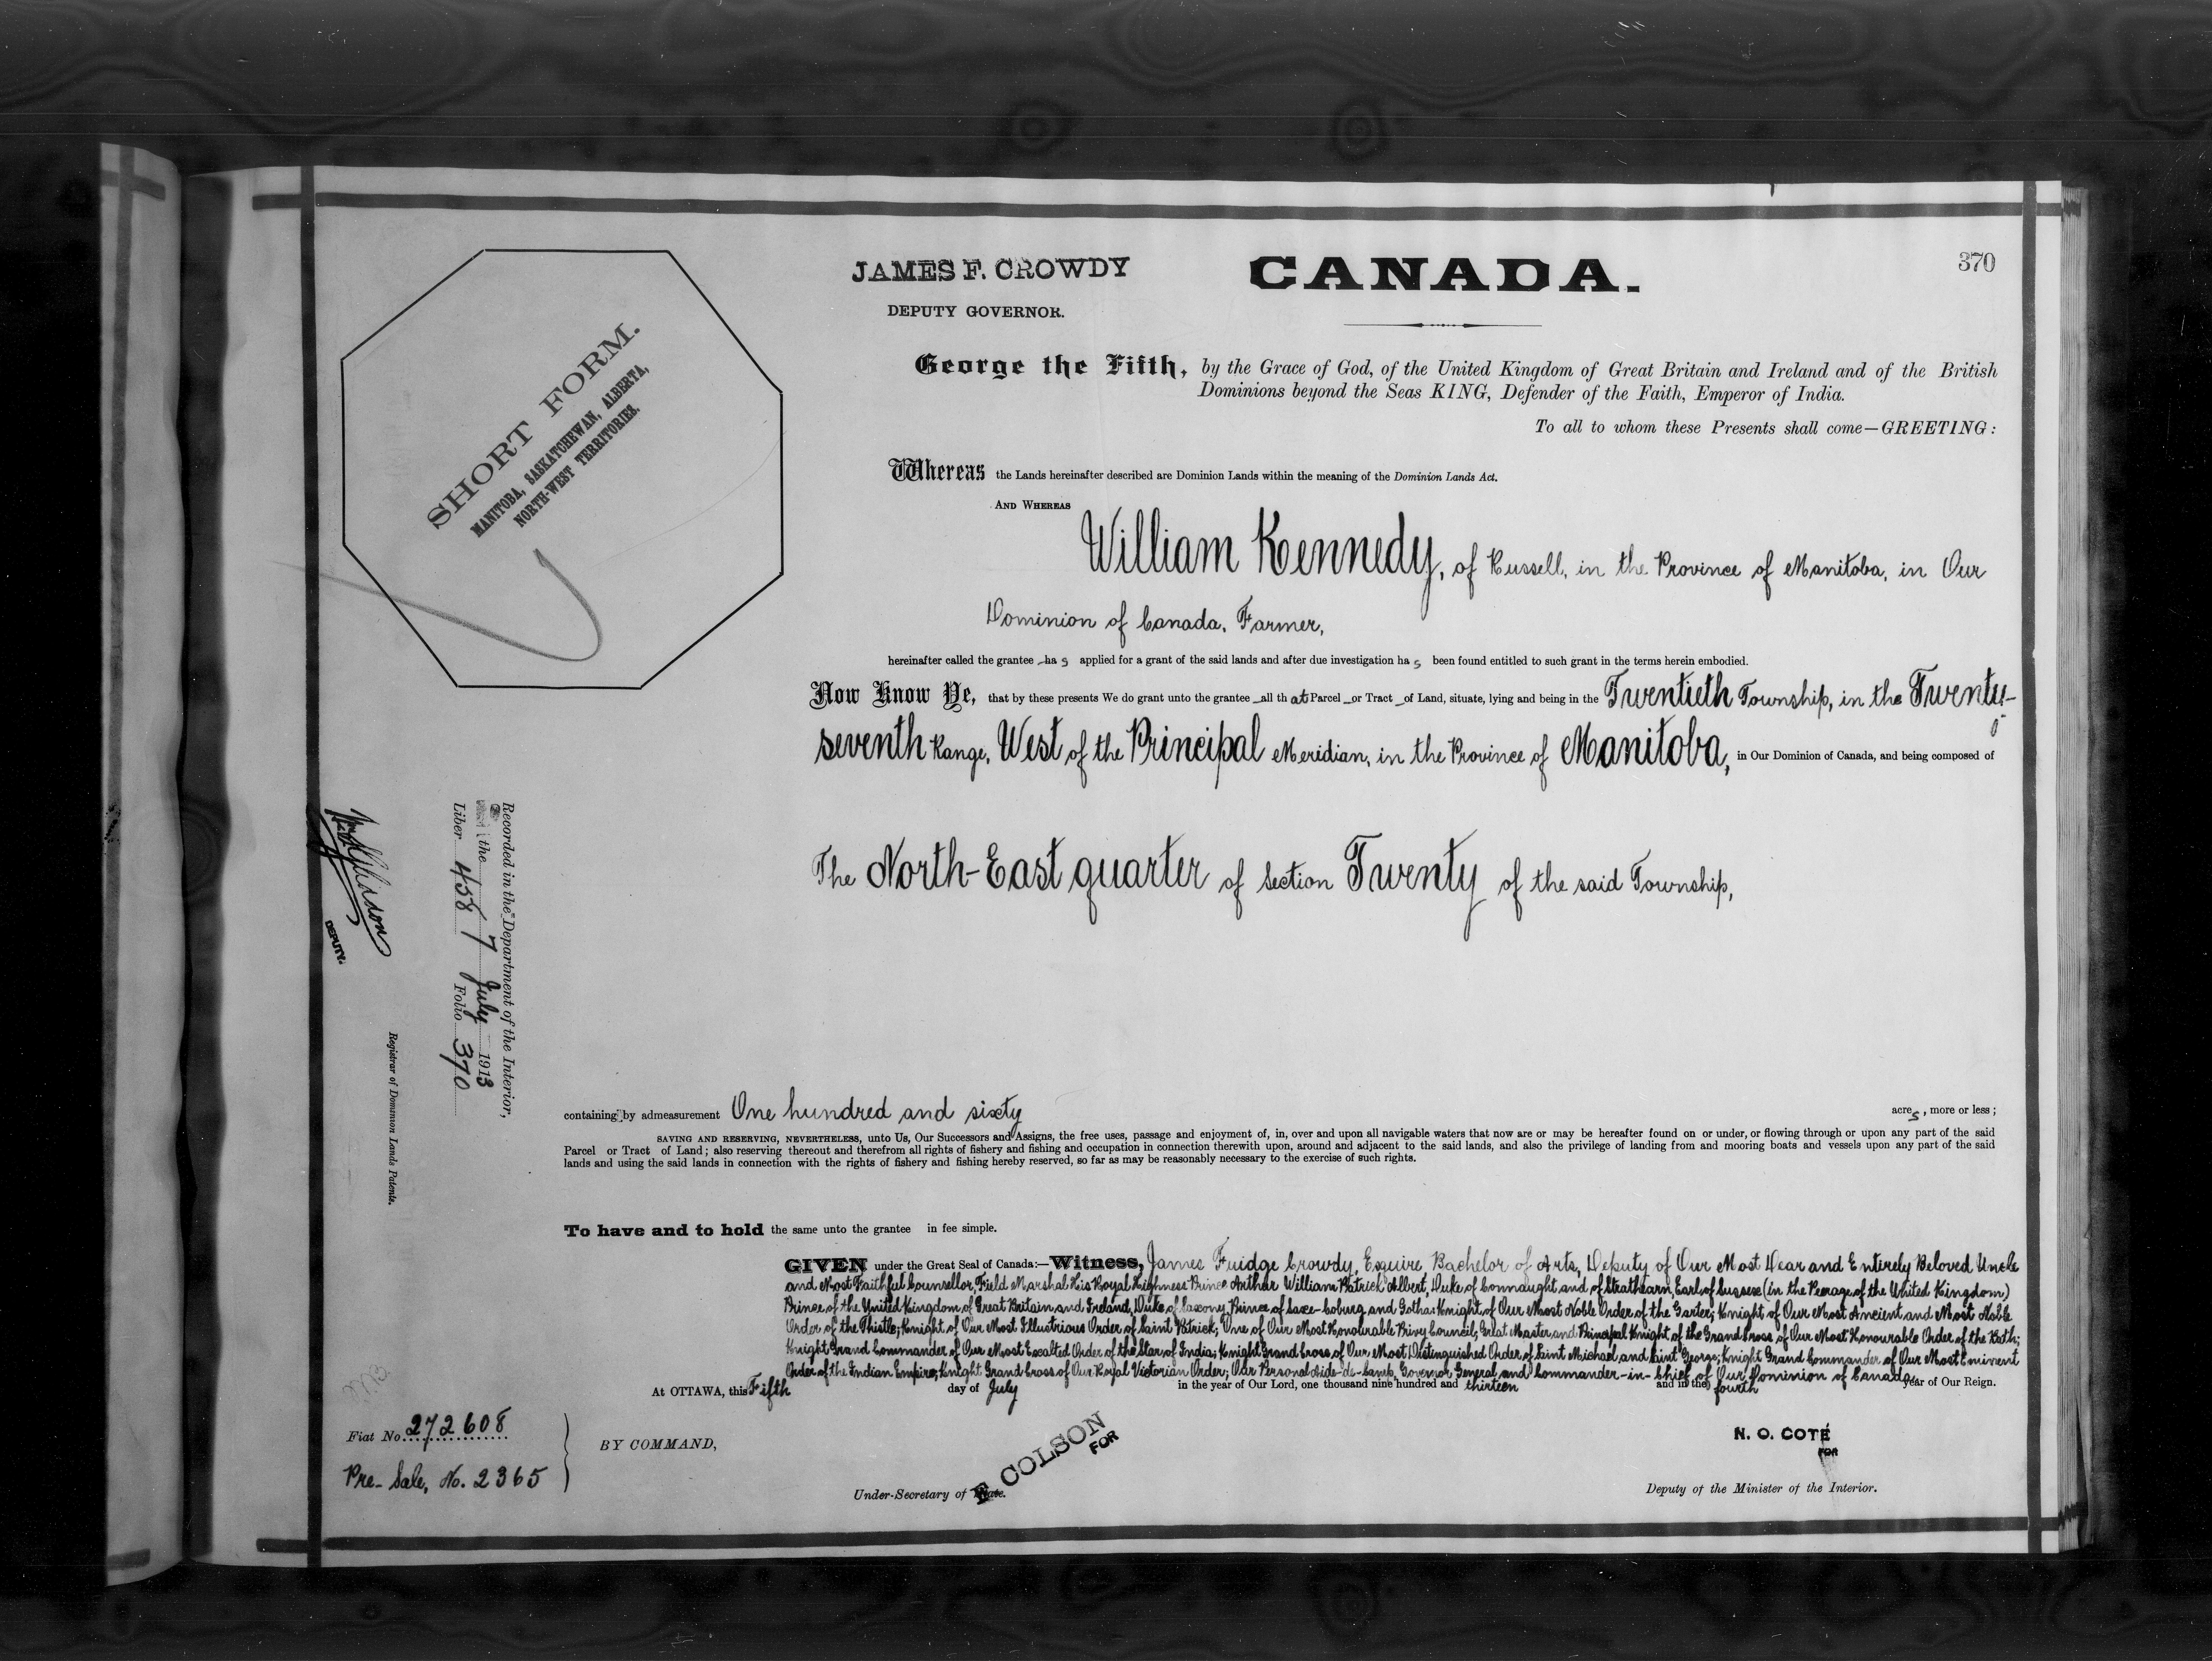 370
JAMES F. CROWDY
DEPUTY GOVERNOR.
CANADA.
SHORT FORM.
MANITOBA, SASKATCHEWAN, ALBERTA,
NORTH-WEST TERRITORIES.
George the Fifth, by the Grace of God, of the United Kingdom of Great Britain and Ireland and of the British
Dominions beyond the Seas KING, Defender of the Faith, Emperor of India.
To all to whom these Presents shall come—GREETING:
Whereas the Lands hereinafter described are Dominion Lands within the meaning of the Dominion Lands Act.
AND WHEREAS
William Kennedy, of Russell, in the Province of Manitoba, in Our
Dominion of Canada, Farmer,
hereinafter called the grantee has applied for a grant of the said lands and after due investigation has been found entitled to such grant in the terms herein embodied.
Now Know Ye, that by these presents We do grant unto the grantee all that Parcel or Tract of Land, situate, lying and being in the Twentieth Township, in the Twenty-
seventh Range, West of the Principal Meridian, in the Province of Manitoba, in Our Dominion of Canada, and being composed of
The North-East quarter of Section Twenty of the said Township,
Recorded in the Department of the Interior,
the 7 July 1913
Liber 458 Folio 370
DEPUTY.
Registrar of Dominion Lands Patents.
containing by admeasurement One hundred and sixty acres, more or less;
SAVING AND RESERVING, NEVERTHELESS, unto Us, Our Successors and Assigns, the free uses, passage and enjoyment of, in, over and upon all navigable waters that now are or may be hereafter found on or under, or flowing through or upon any part of the said
Parcel or Tract of Land; also reserving thereout and therefrom all rights of fishery and fishing and occupation in connection therewith upon, around and adjacent to the said lands, and also the privilege of landing from and mooring boats and vessels upon any part of the said
lands and using the said lands in connection with the rights of fishery and fishing hereby reserved, so far as may be reasonably necessary to the exercise of such rights.
To have and to hold the same unto the grantee in fee simple.
GIVEN under the Great Seal of Canada:—Witness, James Fuidge Crowdy, Esquire Bachelor of Arts, Deputy of Our Most Dear and Entirely Beloved Uncle
and Most Faithful Counsellor, Field Marshal His Royal Highness Prince Arthur William Patrick Albert, Duke of Connaught and of Strathearn, Earl of Sussex (in the Peerage of the United Kingdom)
Prince of the United Kingdom of Great Britain and Ireland, Duke of Saxony, Prince of Saxe-Coburg and Gotha; Knight of Our Most Noble Order of the Garter; Knight of Our Most Ancient and Most Noble
Order of the Thistle; Knight of Our Most Illustrious Order of Saint Patrick; One of Our Most Honourable Privy Council; Great Master and Principal Knight of the Grand Cross of Our Most Honourable Order of the Bath;
Knight Grand Commander of Our Most Exalted Order of the Star of India; Knight Grand Cross of Our Most Distinguished Order of Saint Michael and Saint George; Knight Grand Commander of Our Most Eminent
Order of the Indian Empire; Knight Grand Cross of Our Royal Victorian Order; Our Personal Aide-de-Camp, Governor General and Commander-in-Chief of Our Dominion of Canada.
At OTTAWA, this Fifth day of July in the year of Our Lord, one thousand nine hundred and thirteen and in the fourth year of Our Reign.
Fiat No. 272608
Pre-Sale, No. 2365
BY COMMAND,
COLSON
FOR
Under-Secretary of State.
N. O. COTÉ
FOR
Deputy of the Minister of the Interior.